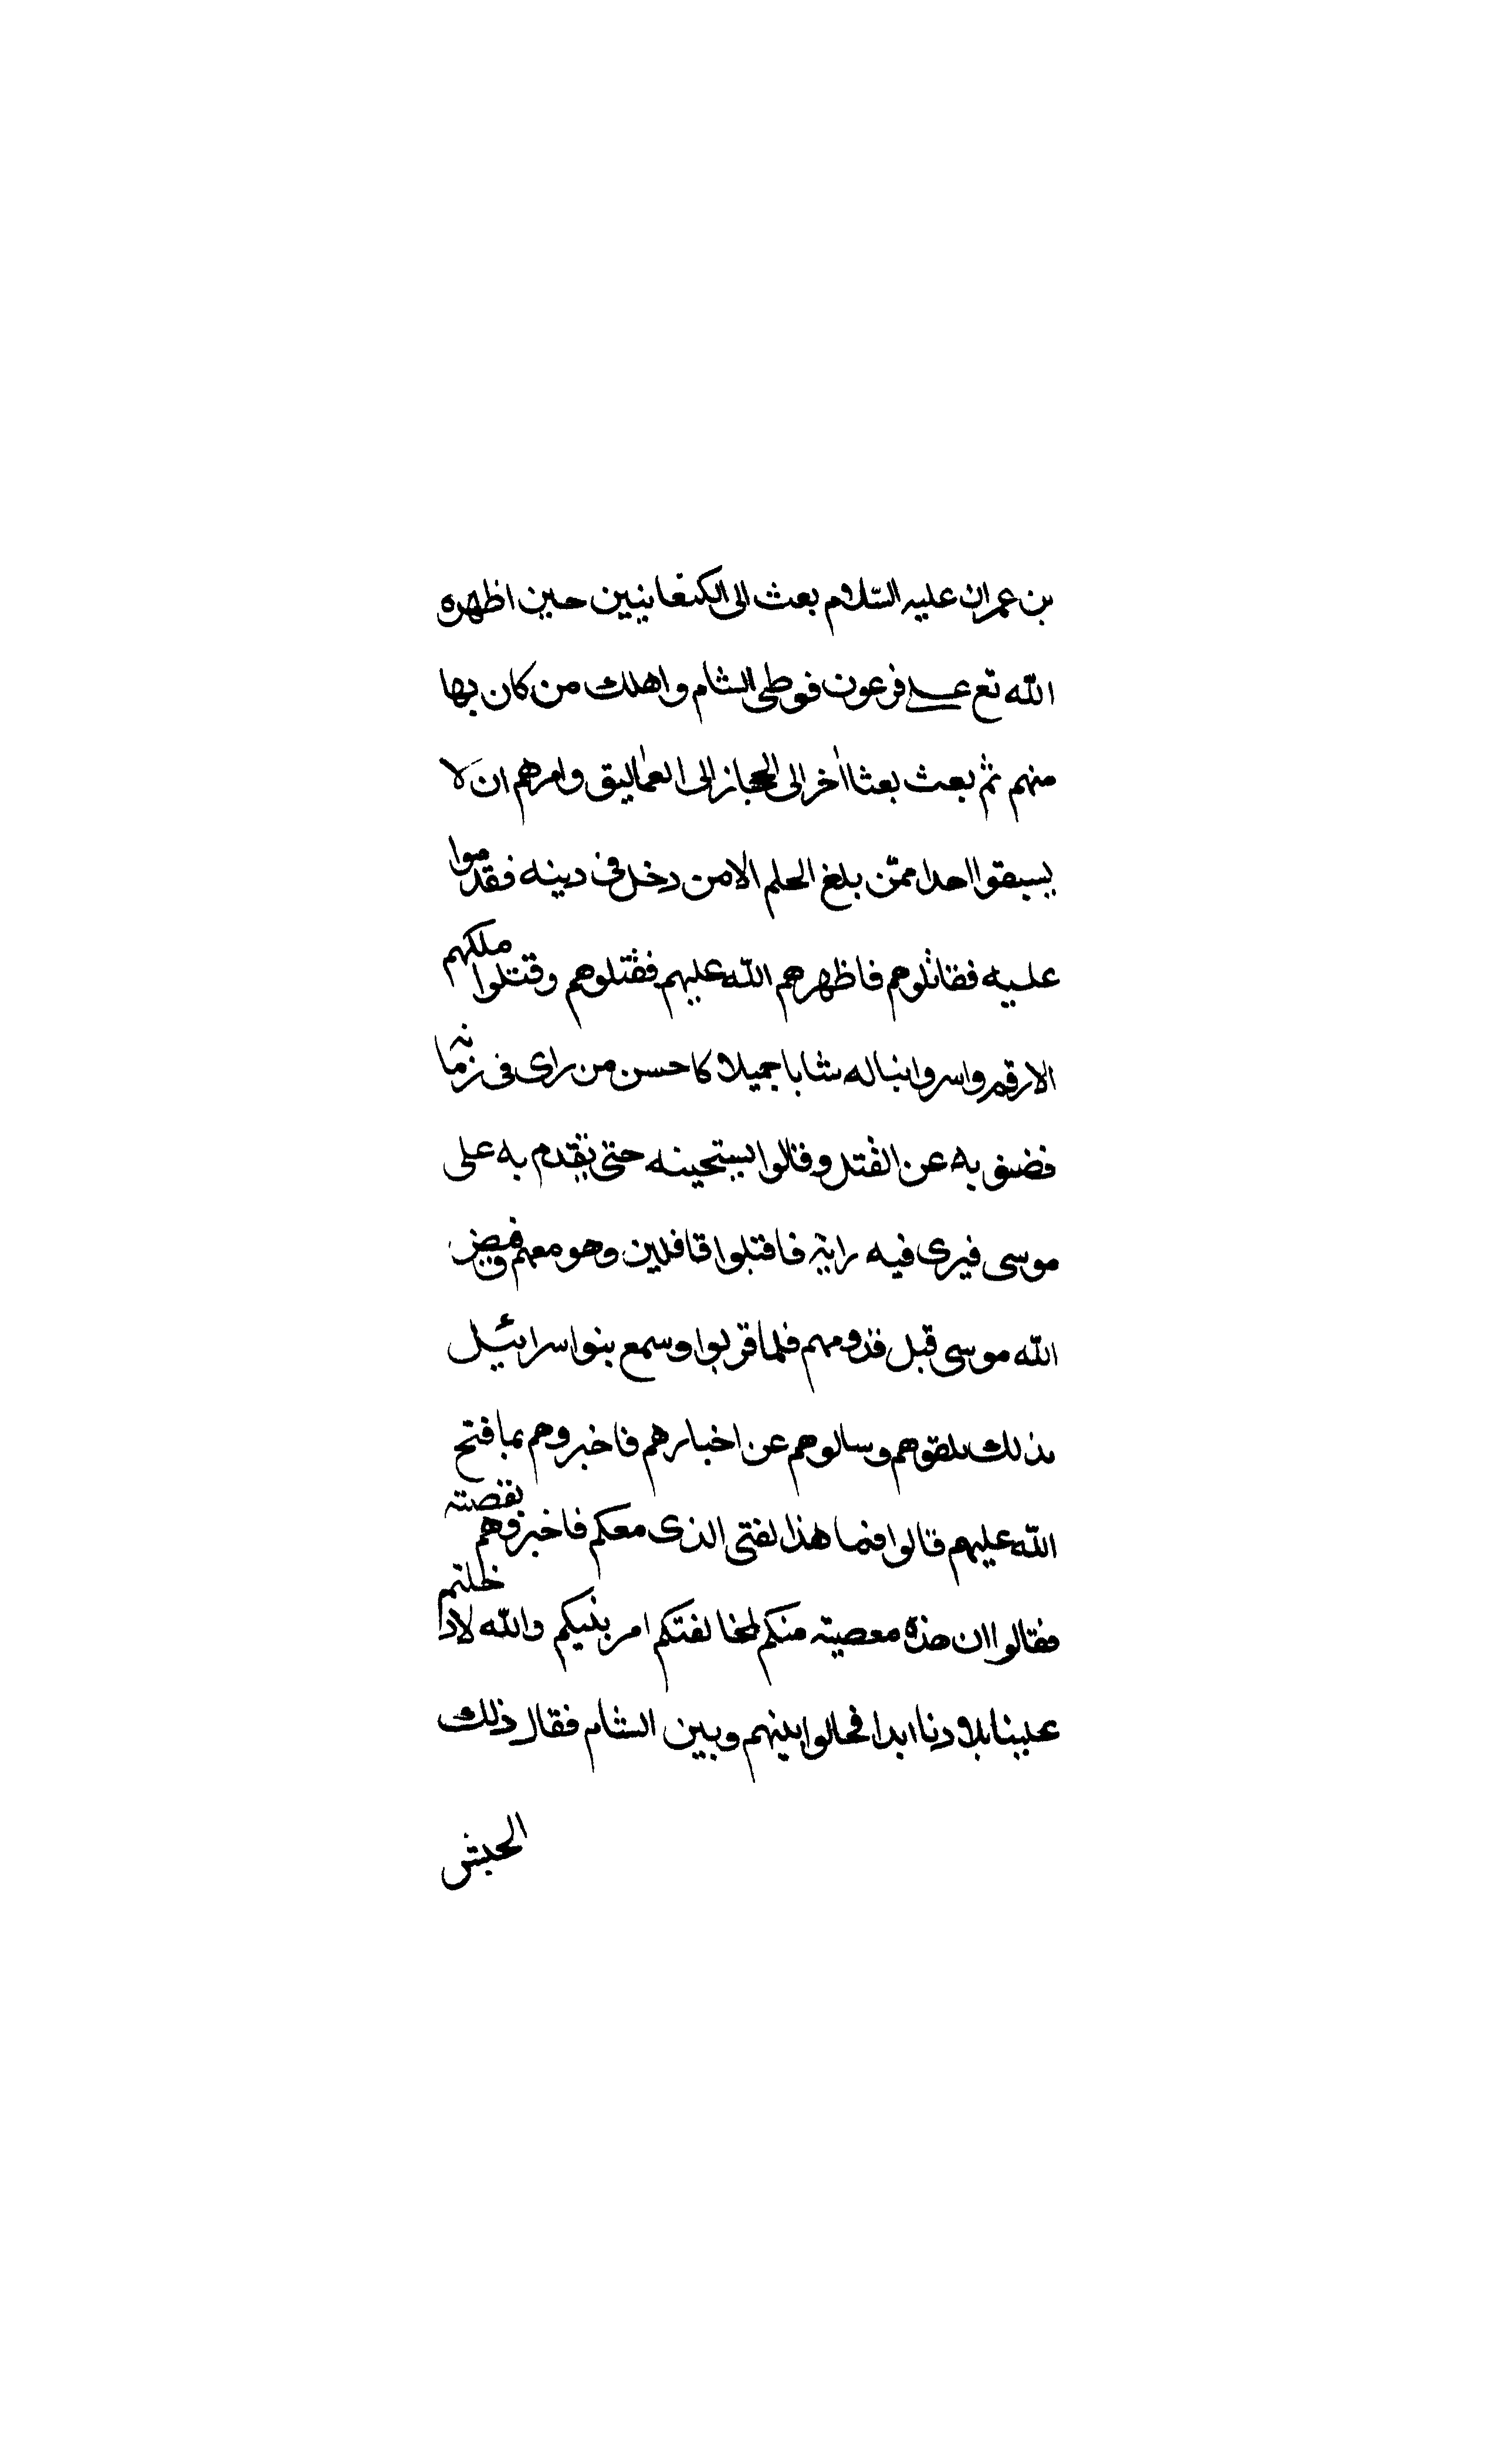 بن عمران عليه السّلام بعث الى الكنعانيين حين اظهره
الله تع على فرعون فوطى الشام واهلك من كان بها
منهم ثم بعث بعثا اخر الى الحجاز الى العماليق وامرهم ان لا
يسبقوا احدا ممّن بلغ الحلم الا من دخل فى دينه فقدموا
عليه فقاتلوهم فاظهرهم الله عليهم فقتلوهم وقتلوا ملكهم
الارقم واسروا ابنا له شابا جميلا كاحسن من راى فى زمانه
فضنف به عن القتل وقالوا يستحينه حتى نقدم به على
موسى فيرى فيه رايه فاقتبلوا قافلين وهو معهم وقبض
الله موسى قبل قدومهم فلما قربوا وسمع بنوا سرائيل
بذلك تلقوهم وسالوهم عن اخبارهم فاخبروهم بما فتح
الله عليهم قالوا فما هذا لفتى الذى معكم فاخبروهم بقصته
فقالوا ان هذه معصية منكم لمخالفتكم امر بنيكم والله لا دخلتم
علينا بلادنا ابدا فحالوا بينهم وبين الشام فقال ذلك
الجيش